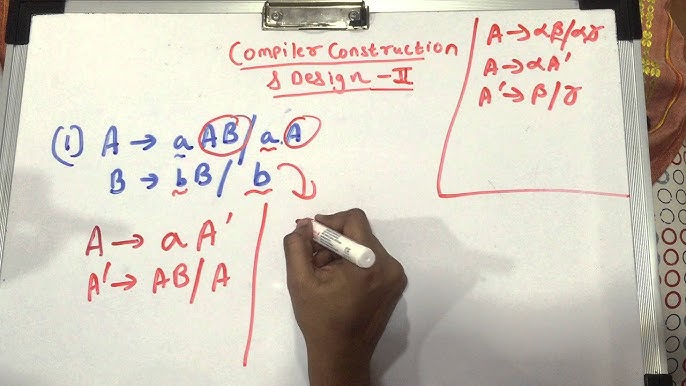 Compiler Construction
& Design - II
A → αβ/αγ
A → αA'
A' → β/γ
(1) A → aAB/a.A
B → bB/b
A → aA'
A' → AB/A